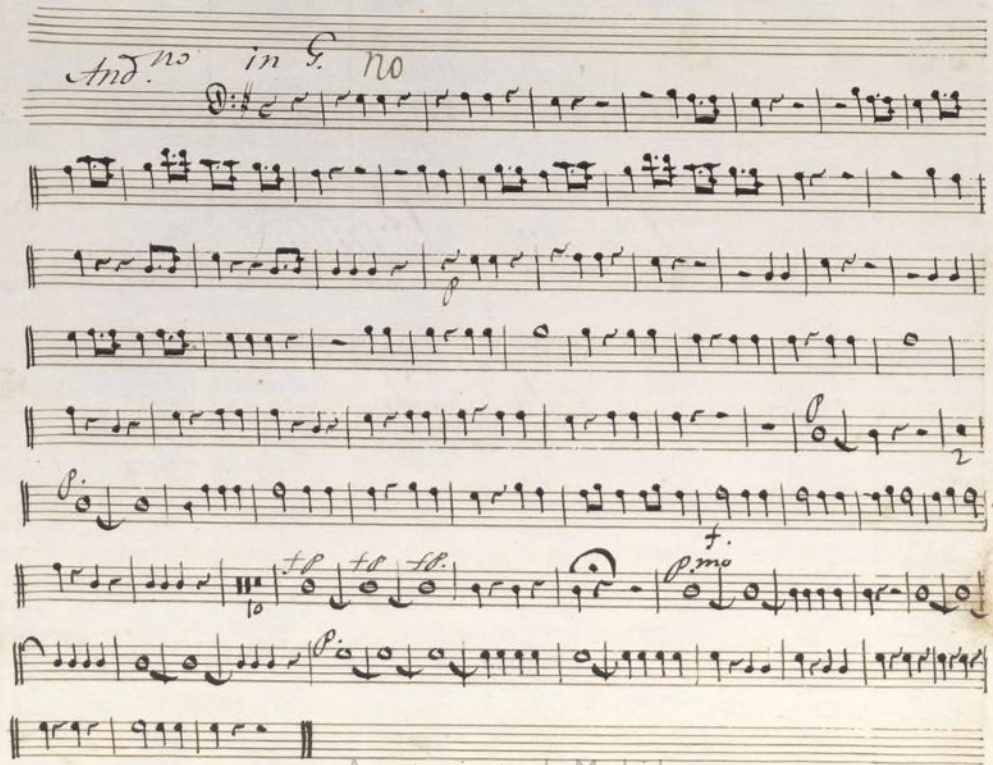 And.no in G. no
p
p
2
p.
f.
fp fp fp. p.mo
10
p.